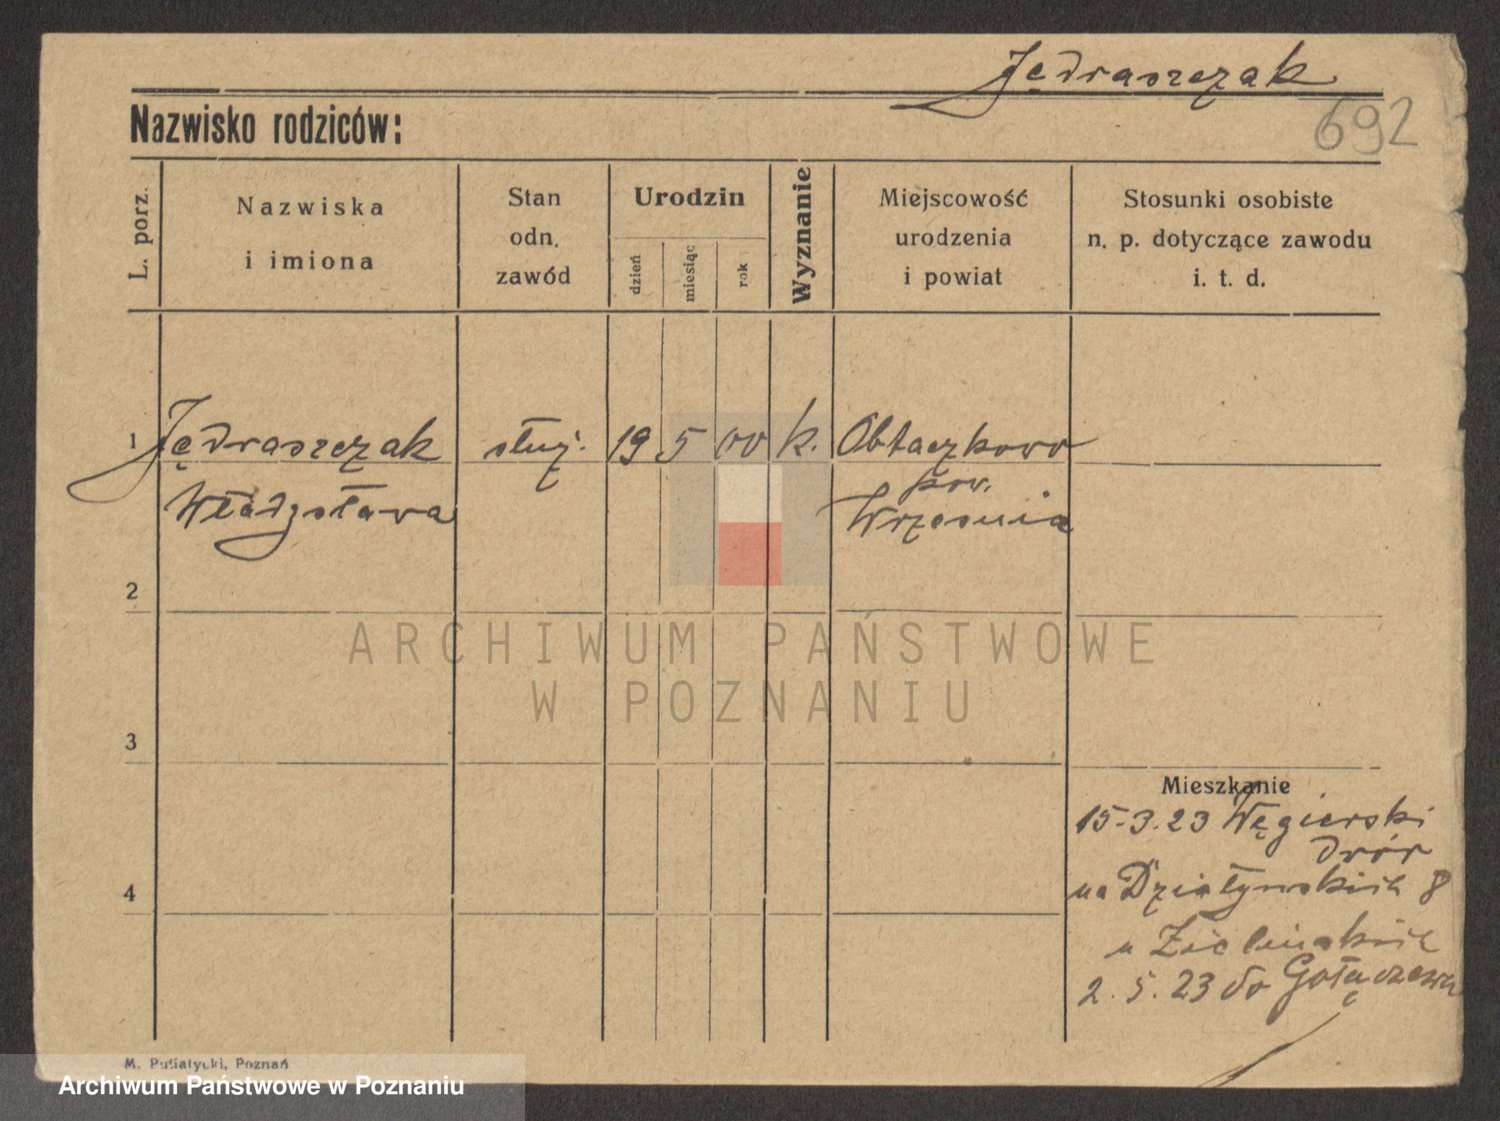 Jędraszczak
692
Nazwisko rodziców:
L. porz.
Nazwiska
i imiona
Stan
odn.
zawód
Urodzin
dzień
miesiąc
rok
Wyznanie
Miejscowość
urodzenia
i powiat
Stosunki osobiste
n. p. dotyczące zawodu
i. t. d.
1 Jędraszczak służ. 19 5 00 k. Obłaczkowo
pow.
Władysława Września
2
ARCHIWUM PAŃSTWOWE
W POZNANIU
3
Mieszkanie
15-3.23 Węgierski
dwór
4
na Działyńskich 8
u Zielińskich
2.5.23 do
M. Putiatycki, Poznań
Archiwum Państwowe w Poznaniu